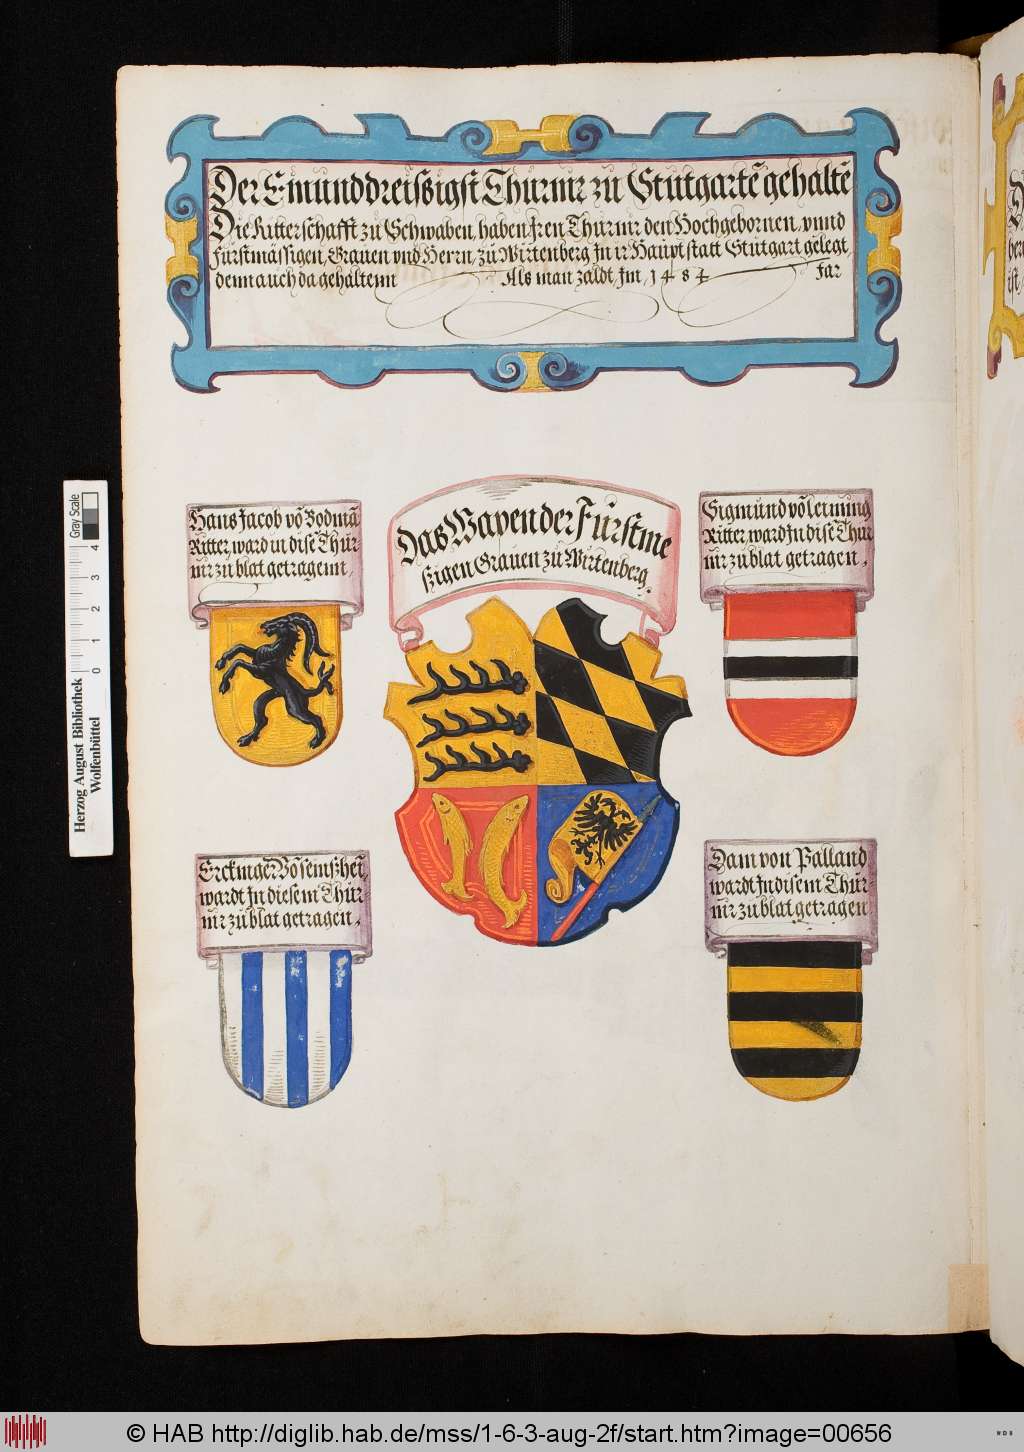 Der Einunddreissigst Thurnir zu Stutgartē gehaltē
Die Ritterschafft zu Schwaben, haben Jren Thurnir den Hochgebornen, vnnd
fürstmässigen, Grauen vnd Herrn, zu Wirtenberg Jn ir Haupt statt Stutgart gelegt,
denn auch da gehaltenn Als man zaldt, Jm, 1484 Jar
Das Wapen der Fürstme
ssigen Grauen zu Wirtenberg.
Hans Jacob vō Bodmā
Ritter, ward in dise Thur
nir zu blat getragenn,
Sigmund vō
Ritter ward Jn dise Thur
nir zu blat getragen,
wardt Jn diesem Thur
nir zu blat getragen,
Dam von Palland
wardt Jn disem Thur
nir zu blat getragen
Gray Scale
0 1 2 3 4
Herzog August Bibliothek
Wolfenbüttel
© HAB http://diglib.hab.de/mss/1-6-3-aug-2f/start.htm?image=00656